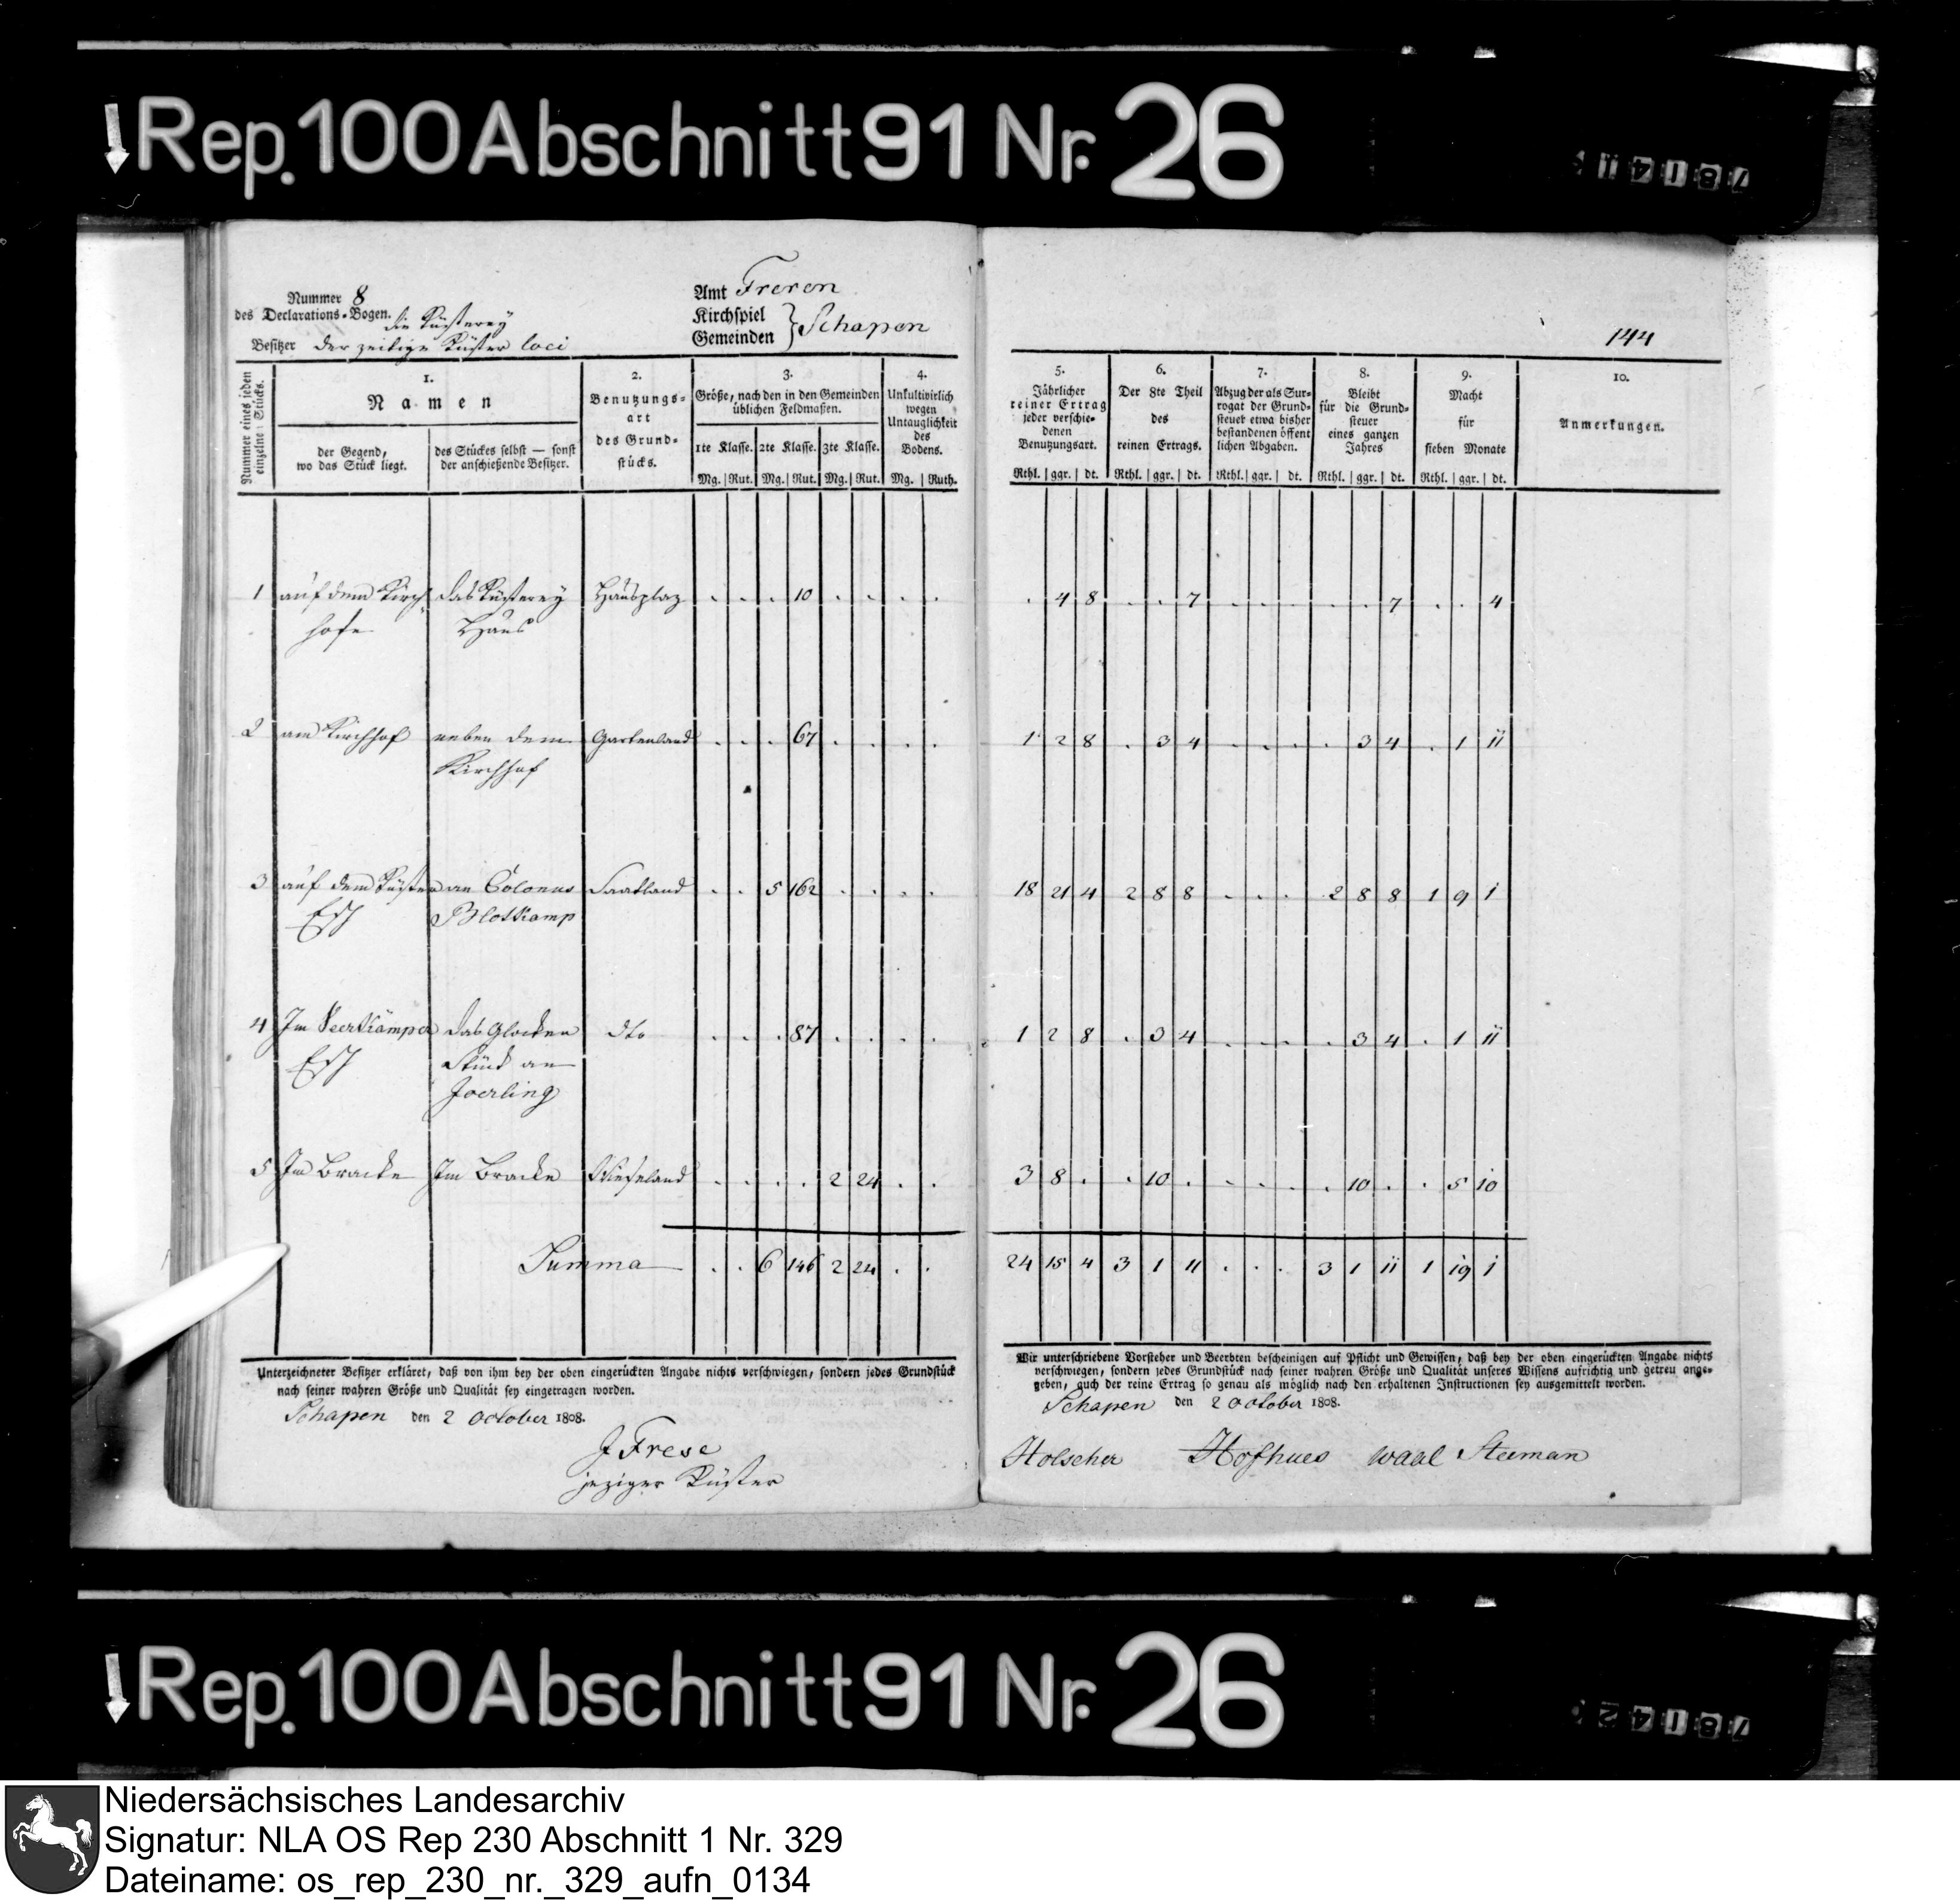 Rep. 100 Abschnitt 91 Nr. 26
78141
Nummer 8
des Declarations-Bogen.
die Küsterey
Besitzer der zeitige Küster loci
Amt Freren
Kirchspiel
Gemeinden } Schapen
144
Nummer eines jeden einzelne Stücks.
1.
Namen
der Gegend, wo das Stück liegt.
des Stückes selbst — sonst der anschießende Besitzer.
2.
Benutzungs-
art
des Grund-
stücks.
3.
Größe, nach den in den Gemeinden
üblichen Feldmaßen.
1te Klasse. 2te Klasse. 3te Klasse.
Mg. Rut. Mg. Rut. Mg. Rut.
4.
Unkultivirlich
wegen
Untauglichkeit
des
Bodens.
Mg. Ruth.
5.
Jährlicher
reiner Ertrag
jeder verschie-
denen
Benutzungsart.
Rthl. ggr. dt.
6.
Der 8te Theil
des
reinen Ertrags.
Rthl. ggr. dt.
7.
Abzug der als Sur-
rogat der Grund-
steuer etwa bisher
bestandenen öffent
lichen Abgaben.
Rthl. ggr. dt.
8.
Bleibt
für die Grund-
steuer
eines ganzen
Jahres
Rthl. ggr. dt.
9.
Macht
für
sieben Monate
Rthl. ggr. dt.
10.
Anmerkungen.
1 auf dem Kirch- das Küsterey Hausplaz . . . 10 . . . . . 4 8 . . 7 . . . . . 7 . . 4
hofe Haus
2 am Kirchhof neben dem Gartenland . . . 67 . . . . 1 2 8 . 3 4 . . . . 3 4 . 1 11
Kirchhof
3 auf dem Küster an Colonus Saatland . . 5 162 . . . . 18 21 4 2 8 8 . . . 2 8 8 1 9 1
Esch Blotkamp
4 Im Veerkämper das Glocken dto . . . 87 . . . . 1 2 8 . 3 4 . . . . 3 4 . 1 11
Esch Stück an
Joerling
5 Im Bracke Im Bracke Wieseland . . . . 2 24 . . 3 8 . . 10 . . . . . 10 . . 5 10
Summa . . 6 146 2 24 . . 24 15 4 3 1 11 . . . 3 1 11 1 19 1
Unterzeichneter Besitzer erkläret, daß von ihm bey der oben eingerückten Angabe nichts verschwiegen, sondern jedes Grundstück
nach seiner wahren Größe und Qualität sey eingetragen worden.
Schapen den 2 October 1808.
J Frese
jeziger Küster
Wir unterschriebene Vorsteher und Beerbten bescheinigen auf Pflicht und Gewissen, daß bey der oben eingerückten Angabe nichts
verschwiegen, sondern jedes Grundstück nach seiner wahren Größe und Qualität unseres Wissens aufrichtig und getreu ange-
geben, auch der reine Ertrag so genau als möglich nach den erhaltenen Instructionen sey ausgemittelt worden.
Schapen den 2 October 1808.
Holscher Hofhues waal Steeman
Rep. 100 Abschnitt 91 Nr. 26
78142
Niedersächsisches Landesarchiv
Signatur: NLA OS Rep 230 Abschnitt 1 Nr. 329
Dateiname: os_rep_230_nr._329_aufn_0134